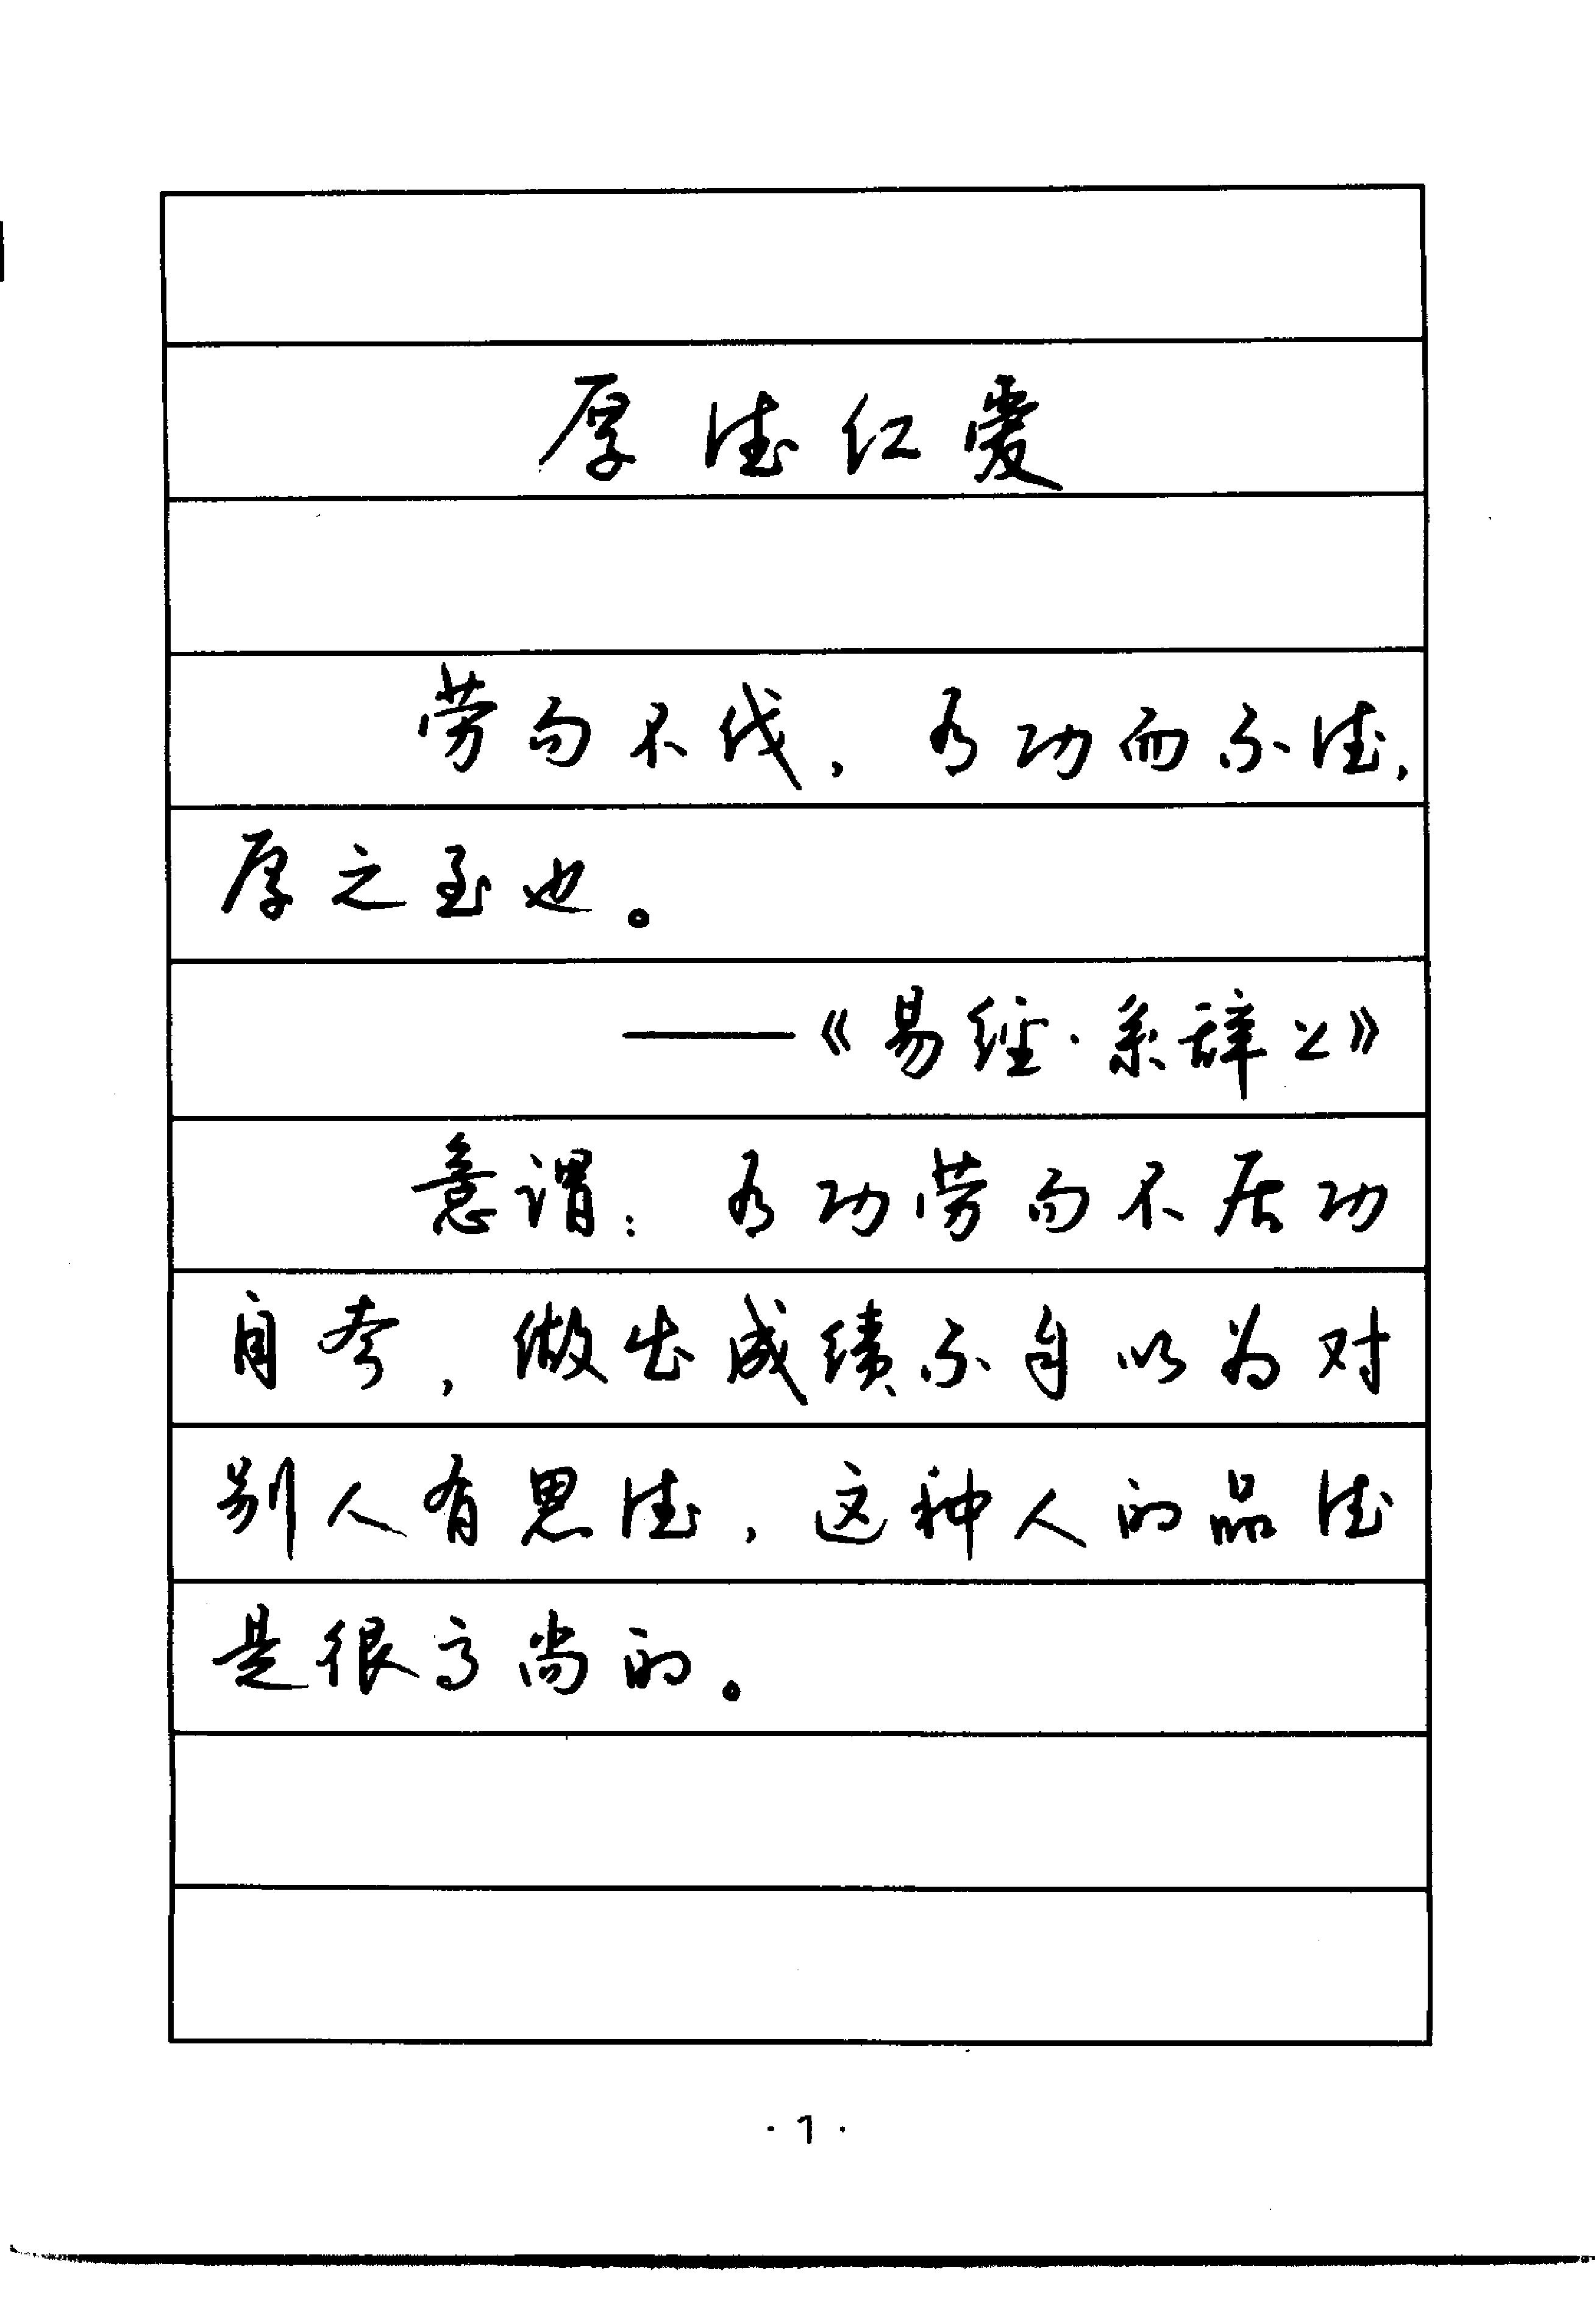 厚德仁爱
劳而不伐，有功而不德，
厚之至也。
——《易经·系辞上》
意谓：有功劳而不居功
自夸，做出成绩不自以为对
别人有恩德，这种人的品德
是很高尚的。
·1·